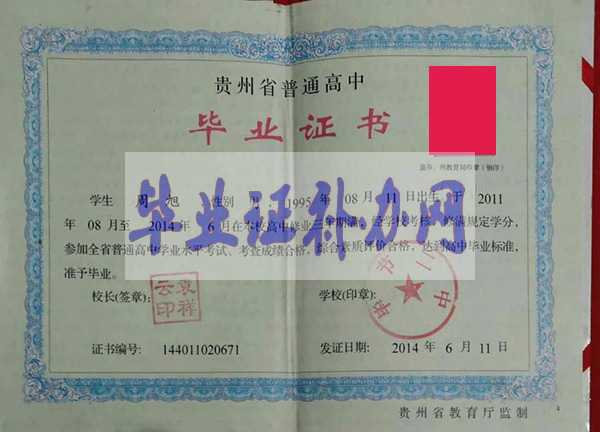 贵州省普通高中
毕业证书
盖市、州教育局印章（钢印）
学生 周 旭 性别 男 1995 年 08 月 11 日出生 于 2011
年 08 月至 2014 年 6 月在本校高中修业三年期满，经学校考核，修满规定学分，
参加全省普通高中学业水平考试、考查成绩合格，综合素质评价合格，达到高中毕业标准，
准予毕业。
毕业证补办网
校长(签章): 袁祥云印
学校(印章): 毕节二中
证书编号: 144011020671
发证日期: 2014 年 6 月 11 日
贵州省教育厅监制